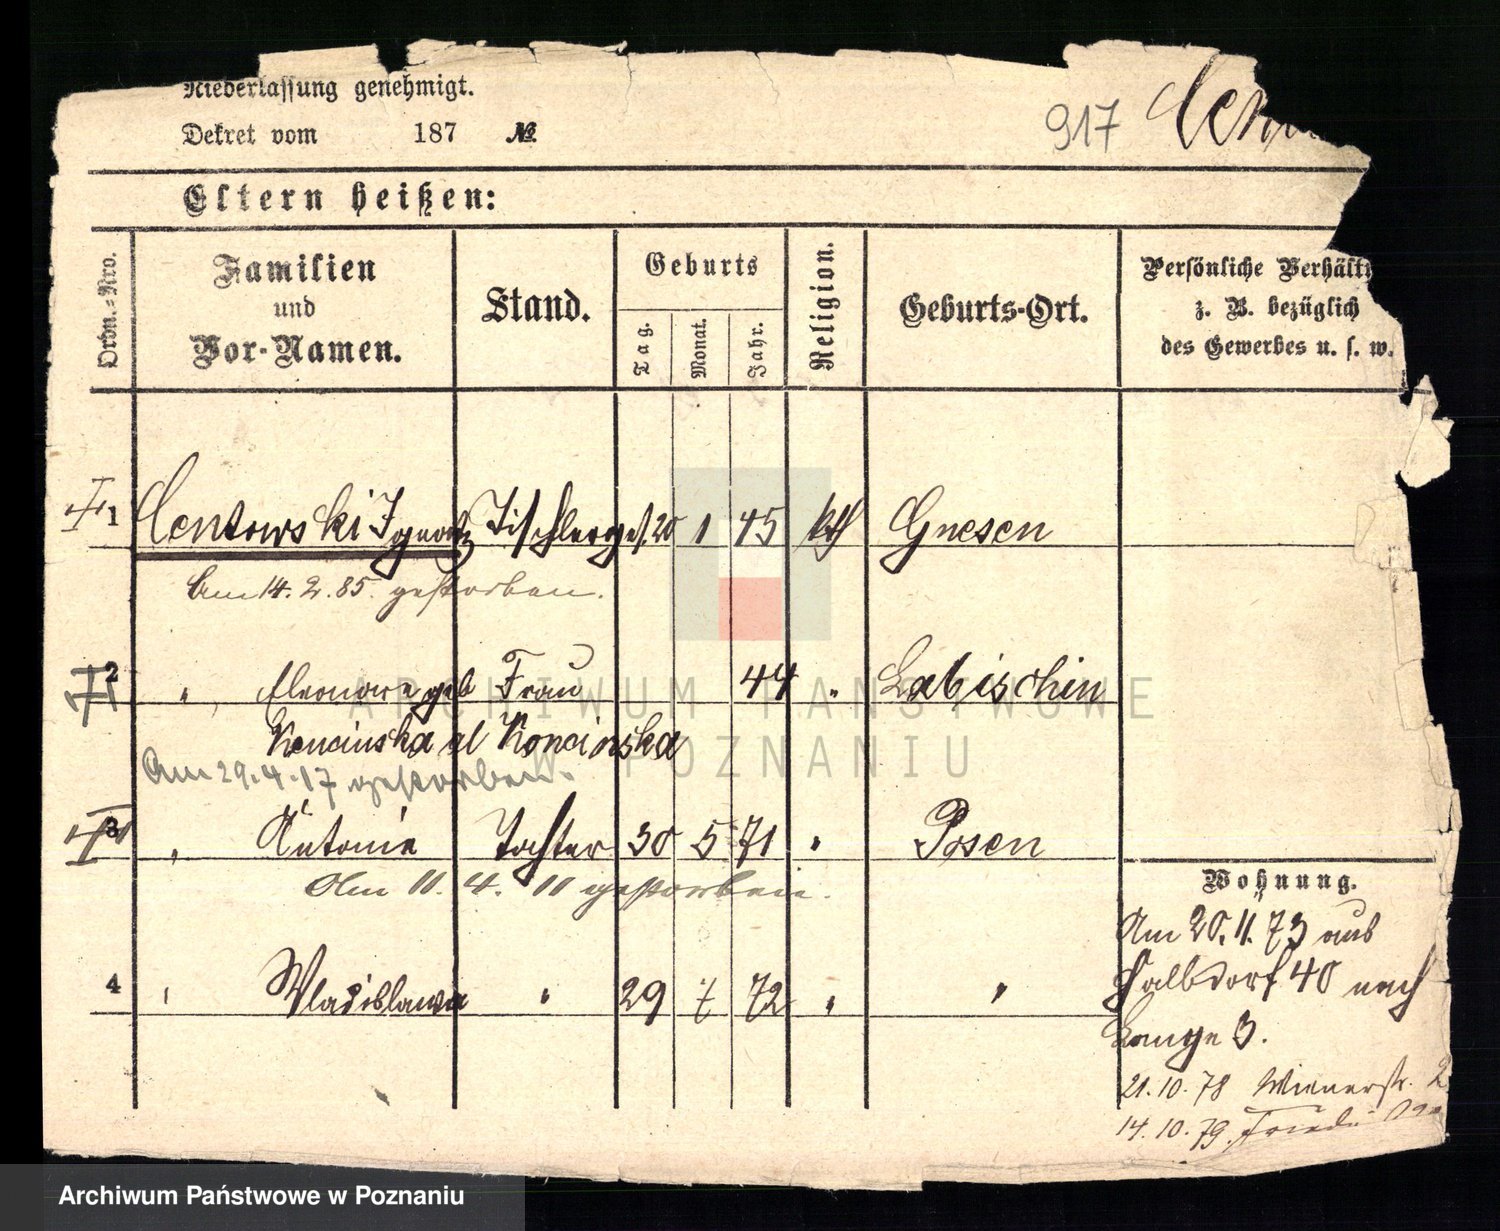 Niederlassung genehmigt.
Dekret vom 187 №
917 Cen
Eltern heißen:
Ordn.=Nro.
Familien
und
Vor-Namen.
Stand.
Geburts
Tag.
Monat.
Jahr.
Religion.
Geburts-Ort.
Persönliche Verhält
z. B. bezüglich
des Gewerbes u. s. w.
1 Centowski Ignatz Tischlerges. 20 1 45 kth Gnesen
Am 14. 2. 85. gestorben.
2 " Eleonore geb Frau 44 " Labischin
Kencinska al Koncinska
Am 29. 4. 17 gestorben.
3 " Antonie Tochter 30 5 71 " Posen
Am 11. 4. 11 gestorben.
4 " Wladislawa " 29 7 72 " "
Wohnung.
Am 20. 11. 73 aus
Halbdorf 40 nach
Lange 3.
21. 10. 78 Wienerstr. 2
14. 10. 79.
ARCHIWUM PAŃSTWOWE
W POZNANIU
Archiwum Państwowe w Poznaniu